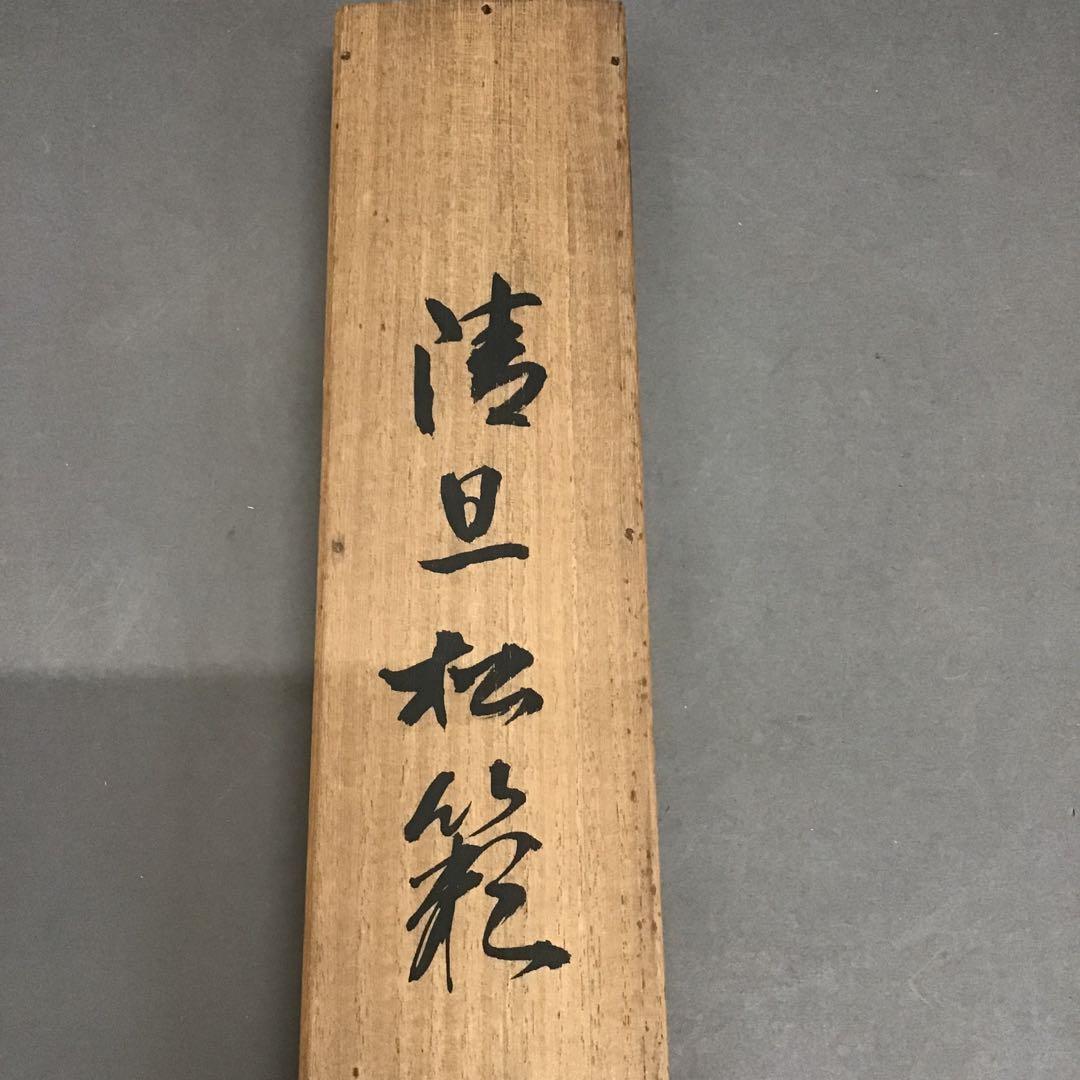 清旦松籟